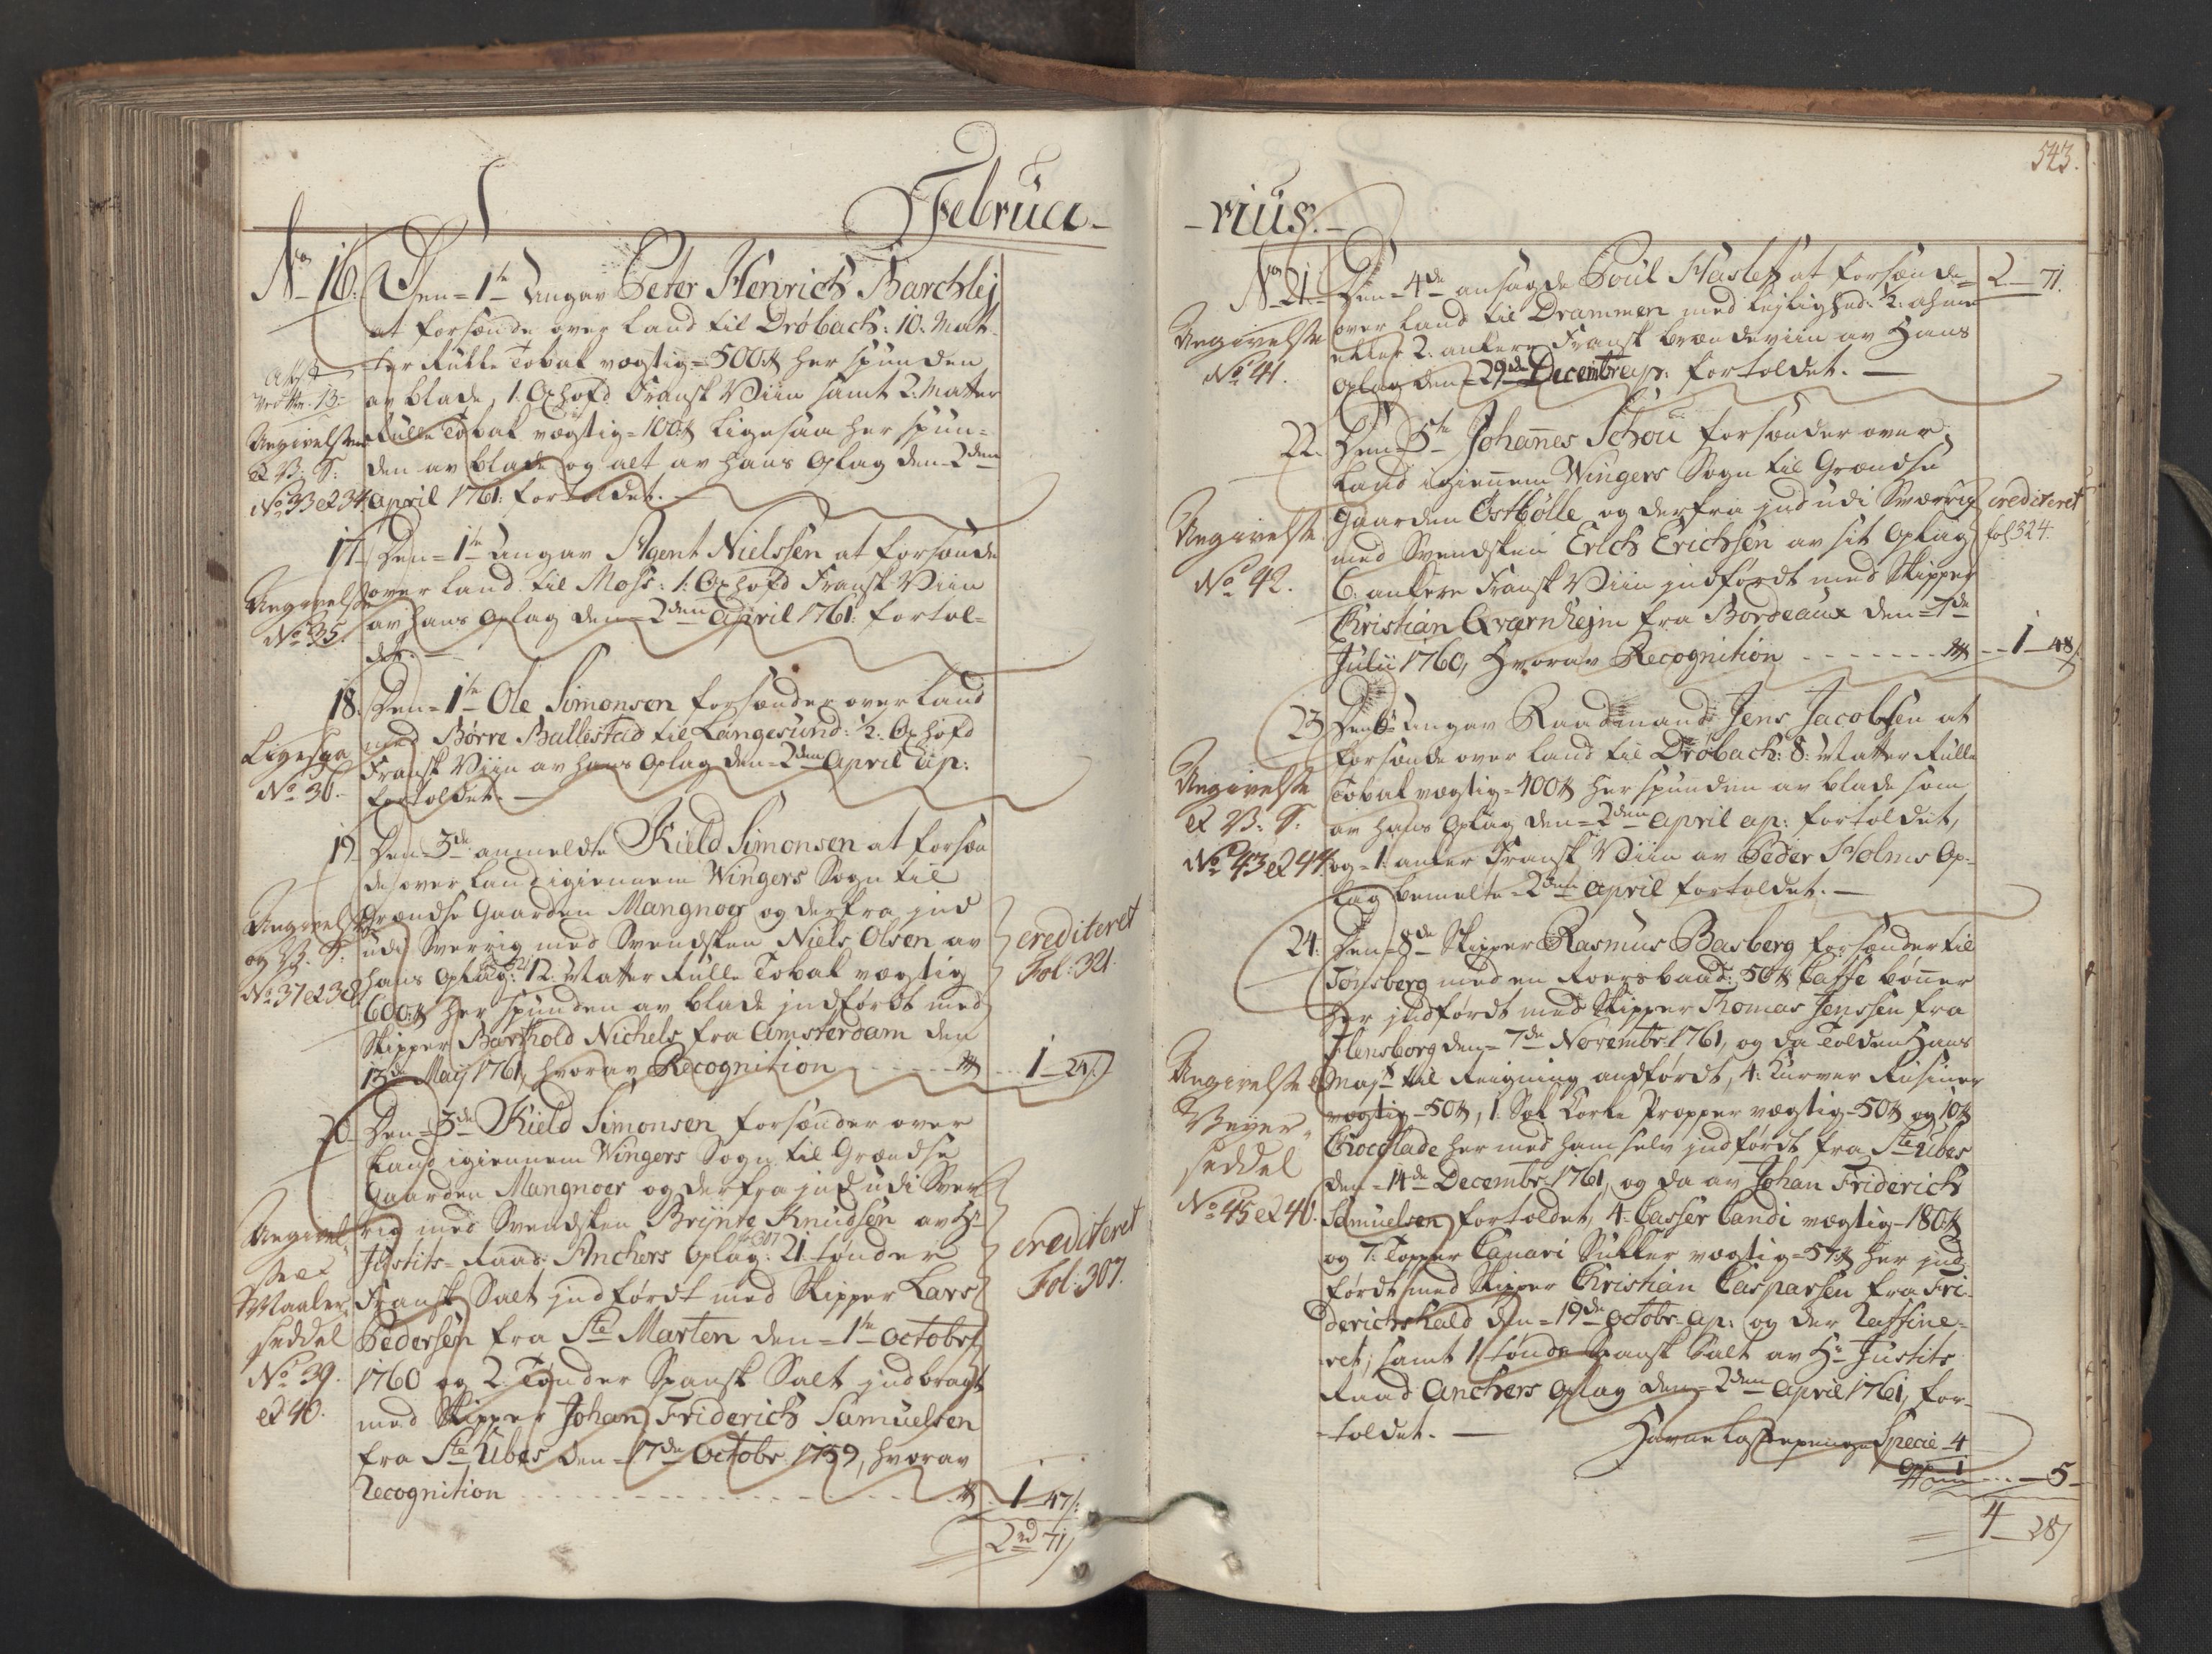 Februa-
No 16. Den = 1te Angav Peter Henrich Barchlej
at forsænde over Land til Drøbach: 10: Mat-
ter Rulle Tobak vægtig = 500 ℔ her spunden
av blade, 1. Oxhofd Fransk Viin samt 2: Matter
Rulle Tobak vægtig = 100 ℔ ligesaa her spun-
den av blade og alt av hans Oplag den = 2den
April 1761: fortoldet.
Angivelsen
et V: S:
No 33 et 34
17. Den = 1te Angav Agent Nielssen at forsænde
over Land til Moss: 1: Oxhofd Fransk Viin
av hans Oplag den = 2den April 1761: fortol-
det.
Angivelse
No 35.
18. Den = 1te Ole Simonsen forsænder over Land
med Børre Ballestad til Langesund: ½: Oxhofd
Fransk Viin av hans Oplag den = 2den April ap:
fortoldet.
Ligesaa
No 36.
19. Den = 3de anmeldte Kield Simonsen at forsæn
de over Land igiennem Wingers Sogn til
Grændse Gaarden Mangnoer og derfra ind
udi Sverrig med Svendsken Niels Olsen av
hans Oplag: 12. Matter Rulle Tobak vægtig
600 ℔ her spunden av blade indført med
Skipper Barthold Nichels fra Amsterdam den
13de Maij 1761, hvorav Recognition - - - 1 - 24
Angivelse
og V. S:
No 37 et 38
crediteret
Fol: 321.
20. Den = 3de Kield Simonsen forsænder over
Land igiennem Wingers Sogn til Grændse
Gaarden Mangnoer og derfra ind udi Sver
rig med Svendsken Brynte Knudsen av Hr
Justits-Raad Anchers Oplag: 21 tønder
Fransk Salt indført med Skipper Lars
Pedersen fra Ste Marten den = 1te Octobr
1760 og 2. Tønder Spansk Salt indbragt
med Skipper Johan Friderich Samuelsen
fra Ste Ubes den = 17de Octobr 1759, hvorav
Recognition - - - 1 - 47
2 rd 71
Angivel-
se et
Maaler
seddel
No 39.
et 40.
crediteret
Fol: 307.
-rius.
543.
No 21. Den = 4de ansagde Poul Hasleff at forsænde 2 - 71.
over Land til Drammen med Leylighed: ½: ahme
eller 2: ankere Fransk brændeviin av Hans
Oplag den = 29de Decembr ap: fortoldet.
Angivelse
No 41.
22. Den = 5te Johannes Schou forsænder over
Land igiennem Wingers Sogn til Grændse
Gaarden Østbølle og derfra ind udi Sværrig
med Svendsken Erich Erichsen av sit Oplag
6: ankere Fransk Viin indført med Skipper
Christian Qvarnhejm fra Bordeaux den = 7de
Julii 1760, Hvorav Recognition - - - 1 - 48
Angivelse
No 42.
crediteret
fol 324.
23. Den 6te Angav Raadmand Jens Jacobsen at
forsænde over Land til Drøbach: 8: Matter Rulle
Tobak vægtig = 400 ℔ her spunden av blade som
av hans Oplag den = 2den April ap: fortoldet,
og 1. anker Fransk Viin av Peder Holms Op-
lag bemelte 2den April fortoldet.
Angivelse
et V: S:
No 43 et 44
24. Den = 8de Skipper Rasmus Basberg forsænder til
Tønsberg med en Roersbaad: 50 ℔ Caffe bønner
her indført med Skipper Thomas Jenssen fra
Flensborg den = 7de Novembr 1761, og da tolden Hans
Majt til Reigning andført, 4: Kurver Rusiner
vægtig = 50 ℔, 1. Sæk Korke Propper vægtig = 50 ℔ og 10 ℔
Chocolade her med ham selv indført fra Ste Ubes
den = 14de Decembr 1761, og da av Johan Friderich
Samuelsen fortoldet, 4. Casser Candi vægtig = 180 ℔
og 7. Topper Canari Sukker vægtig = 57 ℔ her ind
ført med Skipper Christian Casparsen fra Fri-
derichshald den = 19de Octobr ap: og der Raffine-
ret; samt 1 tønde Spansk Salt av Hr Justits
Raad Anchers Oplag den = 2den April 1761, for-
toldet.
Angivelse
Veyer-
seddel
No 45 et 46.
Havnelastepenge Specie 4
1
- - - 5
4 - 28